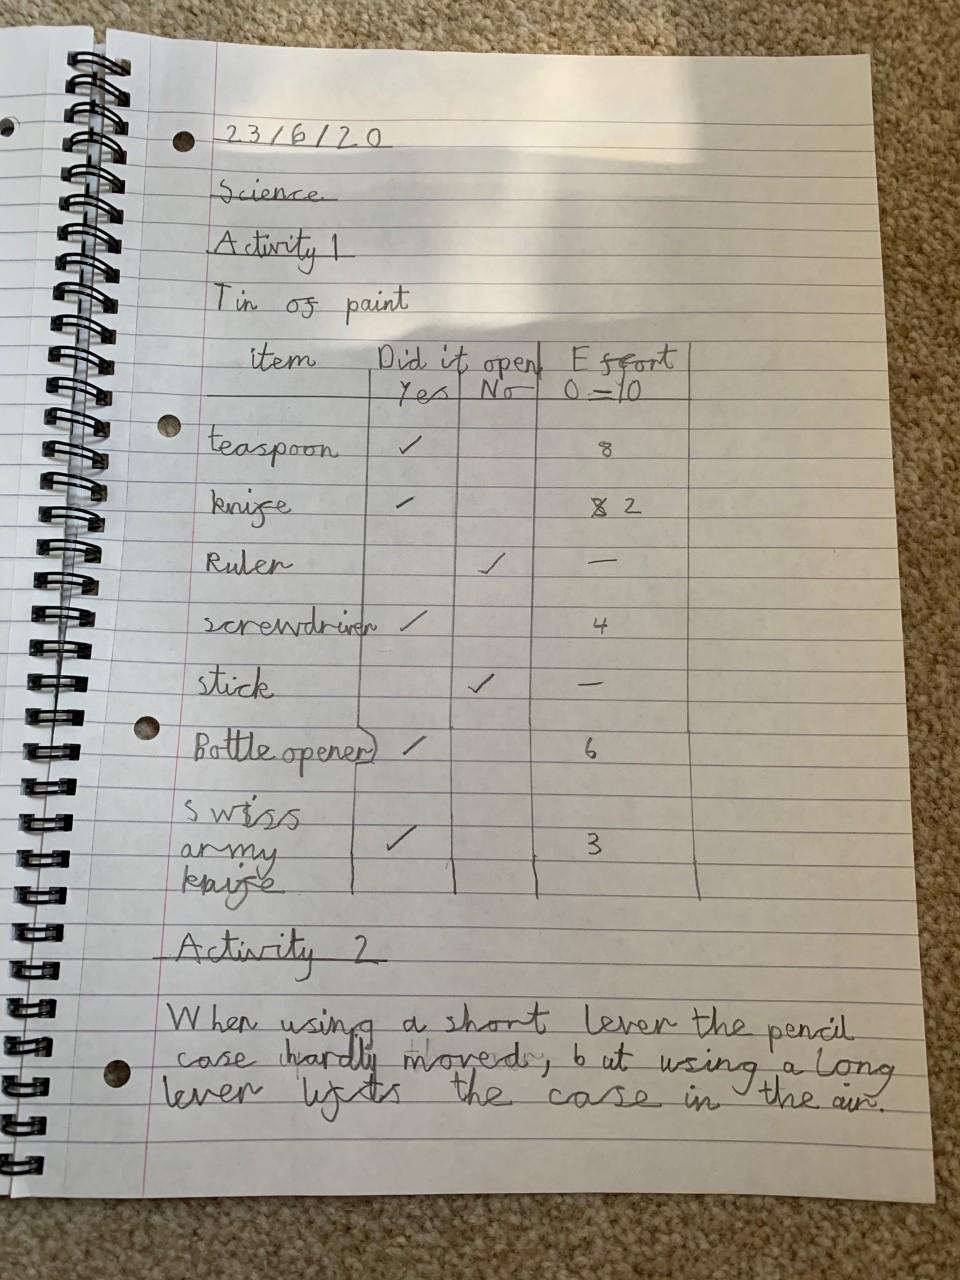 23/6/20
Science
Activity 1
Tin of paint
item Did it open Effort
Yes No 0 = 10
teaspoon ✓ 8
knife ✓ 2
Ruler ✓ —
screwdriver ✓ 4
stick ✓ —
Bottle opener ✓ 6
swiss
army ✓ 3
knife
Activity 2
When using a short lever the pencil
case hardly moved, but using a long
lever lifts the case in the air.